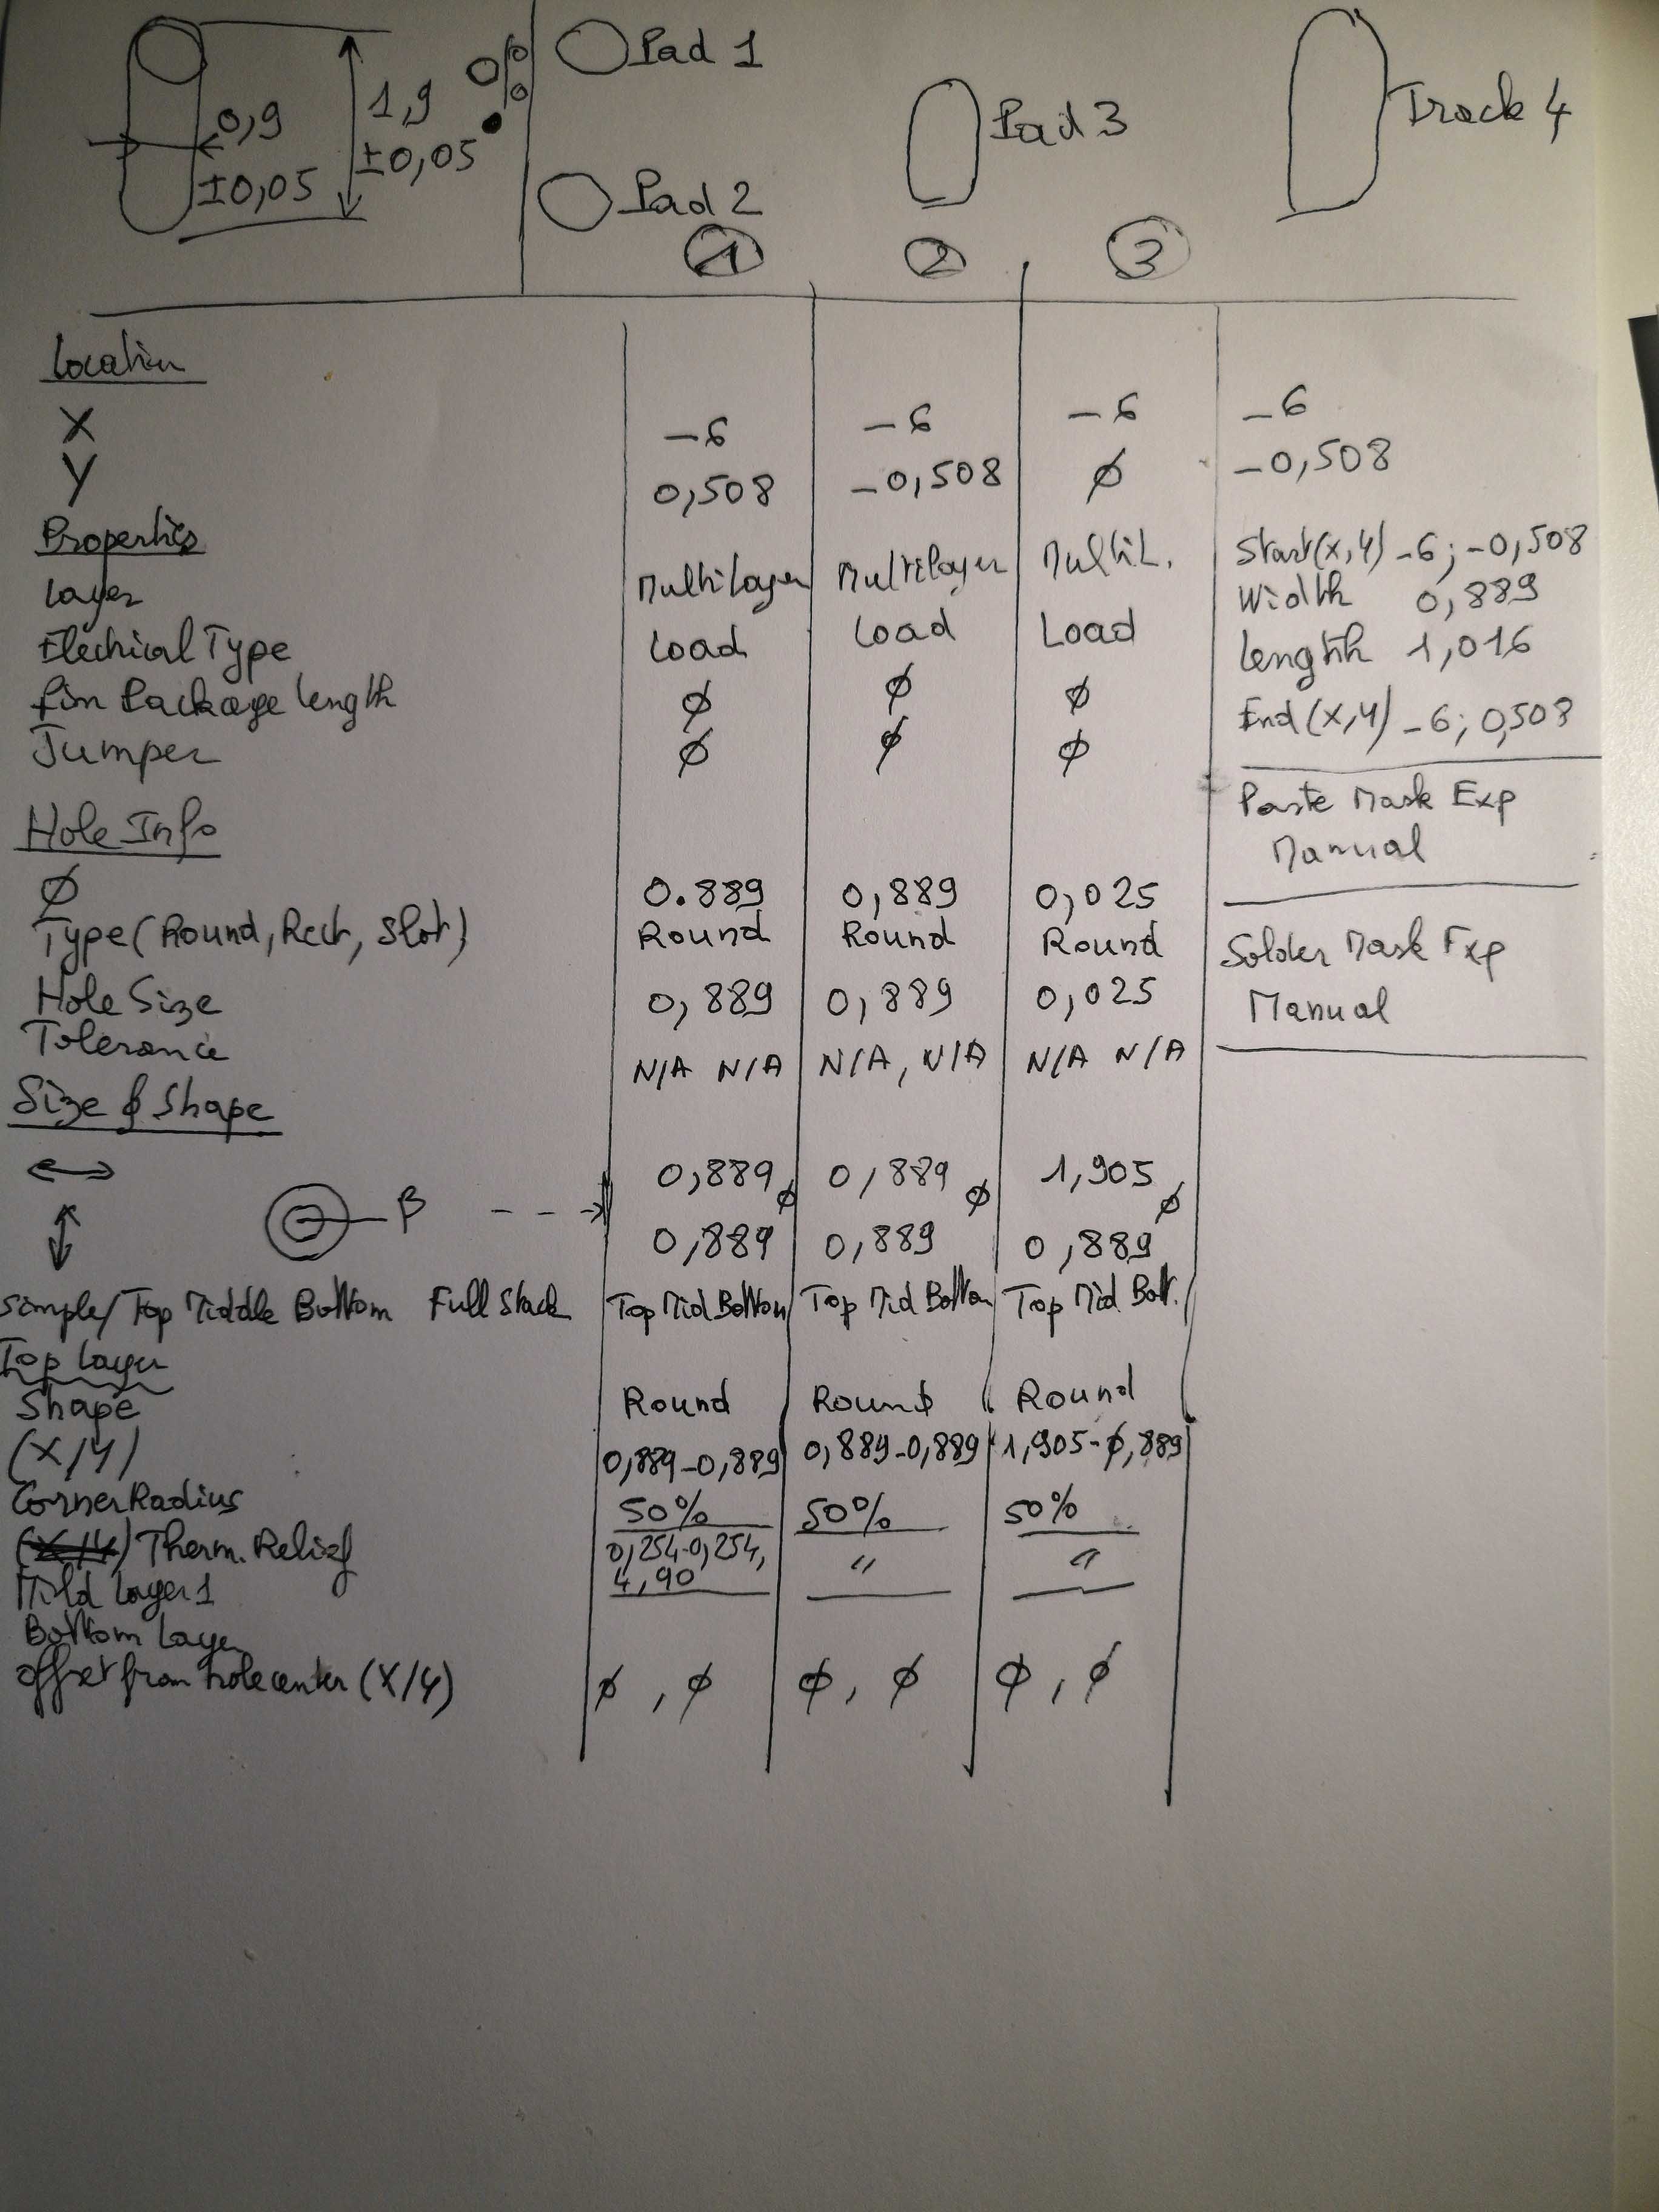 Pad 1
1,9
±0,05
0,9
±0,05
Pad 2
Pad 3
Track 4
1 2 3
Location
X -6 -6 -6 -6
Y 0,508 -0,508 ∅ -0,508
Properties
Layer Multilayer Multilayer MultiL. Start(X,Y) -6; -0,508
Electrical Type Load Load Load Width 0,889
Pin Package Length ∅ ∅ ∅ Length 1,016
Jumper ∅ ∅ ∅ End(X,Y) -6; 0,508
Paste Mask Exp
Manual
Hole Info
∅ 0.889 0,889 0,025
Type (Round, Rect, Slot) Round Round Round
Solder Mask Exp
Manual
Hole Size 0,889 0,889 0,025
Tolerance N/A N/A N/A, N/A N/A N/A
Size & Shape
↔ 0,889 ∅ 0,889 ∅ 1,905 ∅
β
↕ 0,889 0,889 0,889
Simple/Top Middle Bottom Full Stack Top Mid Bottom Top Mid Bottom Top Mid Bott.
Top Layer
Shape Round Round Round
(X/Y) 0,889-0,889 0,889-0,889 1,905-0,889
Corner Radius 50% 50% 50%
(X/Y) Therm. Relief 0,254-0,254, " "
4,90
Mild Layer 1
Bottom Layer
offset from hole center (X/Y) ∅, ∅ ∅, ∅ ∅, ∅